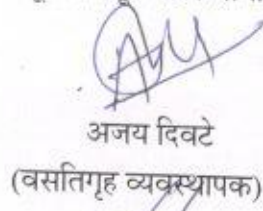 अजय दिवटे
(वसतिगृह व्यवस्थापक)